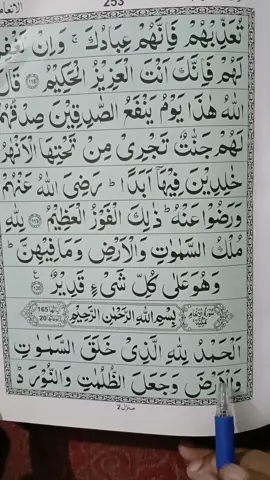 الانعام
253
تُعَذِّبْهُمْ فَاِنَّهُمْ عِبَادُكَ ۚ وَاِنْ تَغْفِرْ
لَهُمْ فَاِنَّكَ اَنْتَ الْعَزِيْزُ الْحَكِيْمُ ﴿۱۱۸﴾ قَالَ
اللّٰهُ هٰذَا يَوْمُ يَنْفَعُ الصّٰدِقِيْنَ صِدْقُهُمْ
لَهُمْ جَنّٰتٌ تَجْرِيْ مِنْ تَحْتِهَا الْاَنْهٰرُ
خٰلِدِيْنَ فِيْهَاۤ اَبَدًا ؕ رَضِيَ اللّٰهُ عَنْهُمْ
وَرَضُوْا عَنْهُ ؕ ذٰلِكَ الْفَوْزُ الْعَظِيْمُ ﴿۱۱۹﴾ لِلّٰهِ
مُلْكُ السَّمٰوٰتِ وَالْاَرْضِ وَمَا فِيْهِنَّ ؕ
وَهُوَ عَلٰى كُلِّ شَيْءٍ قَدِيْرٌ ﴿۱۲۰﴾
بِسْمِ اللّٰهِ الرَّحْمٰنِ الرَّحِيْمِ 165 20
اَلْحَمْدُ لِلّٰهِ الَّذِيْ خَلَقَ السَّمٰوٰتِ
وَالْاَرْضَ وَجَعَلَ الظُّلُمٰتِ وَالنُّوْرَ ؕ
منزل 2